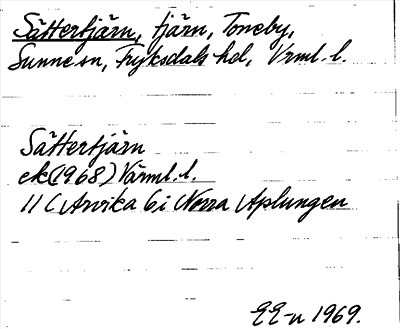 Sättertjärn, tjärn, Toneby,
Sunne sn, Fryksdals hd, Vrml. l.
Sättertjärn
ek (1968) Värml. l.
11 C Arvika 6 i Norra Aplungen
EE-n 1969.